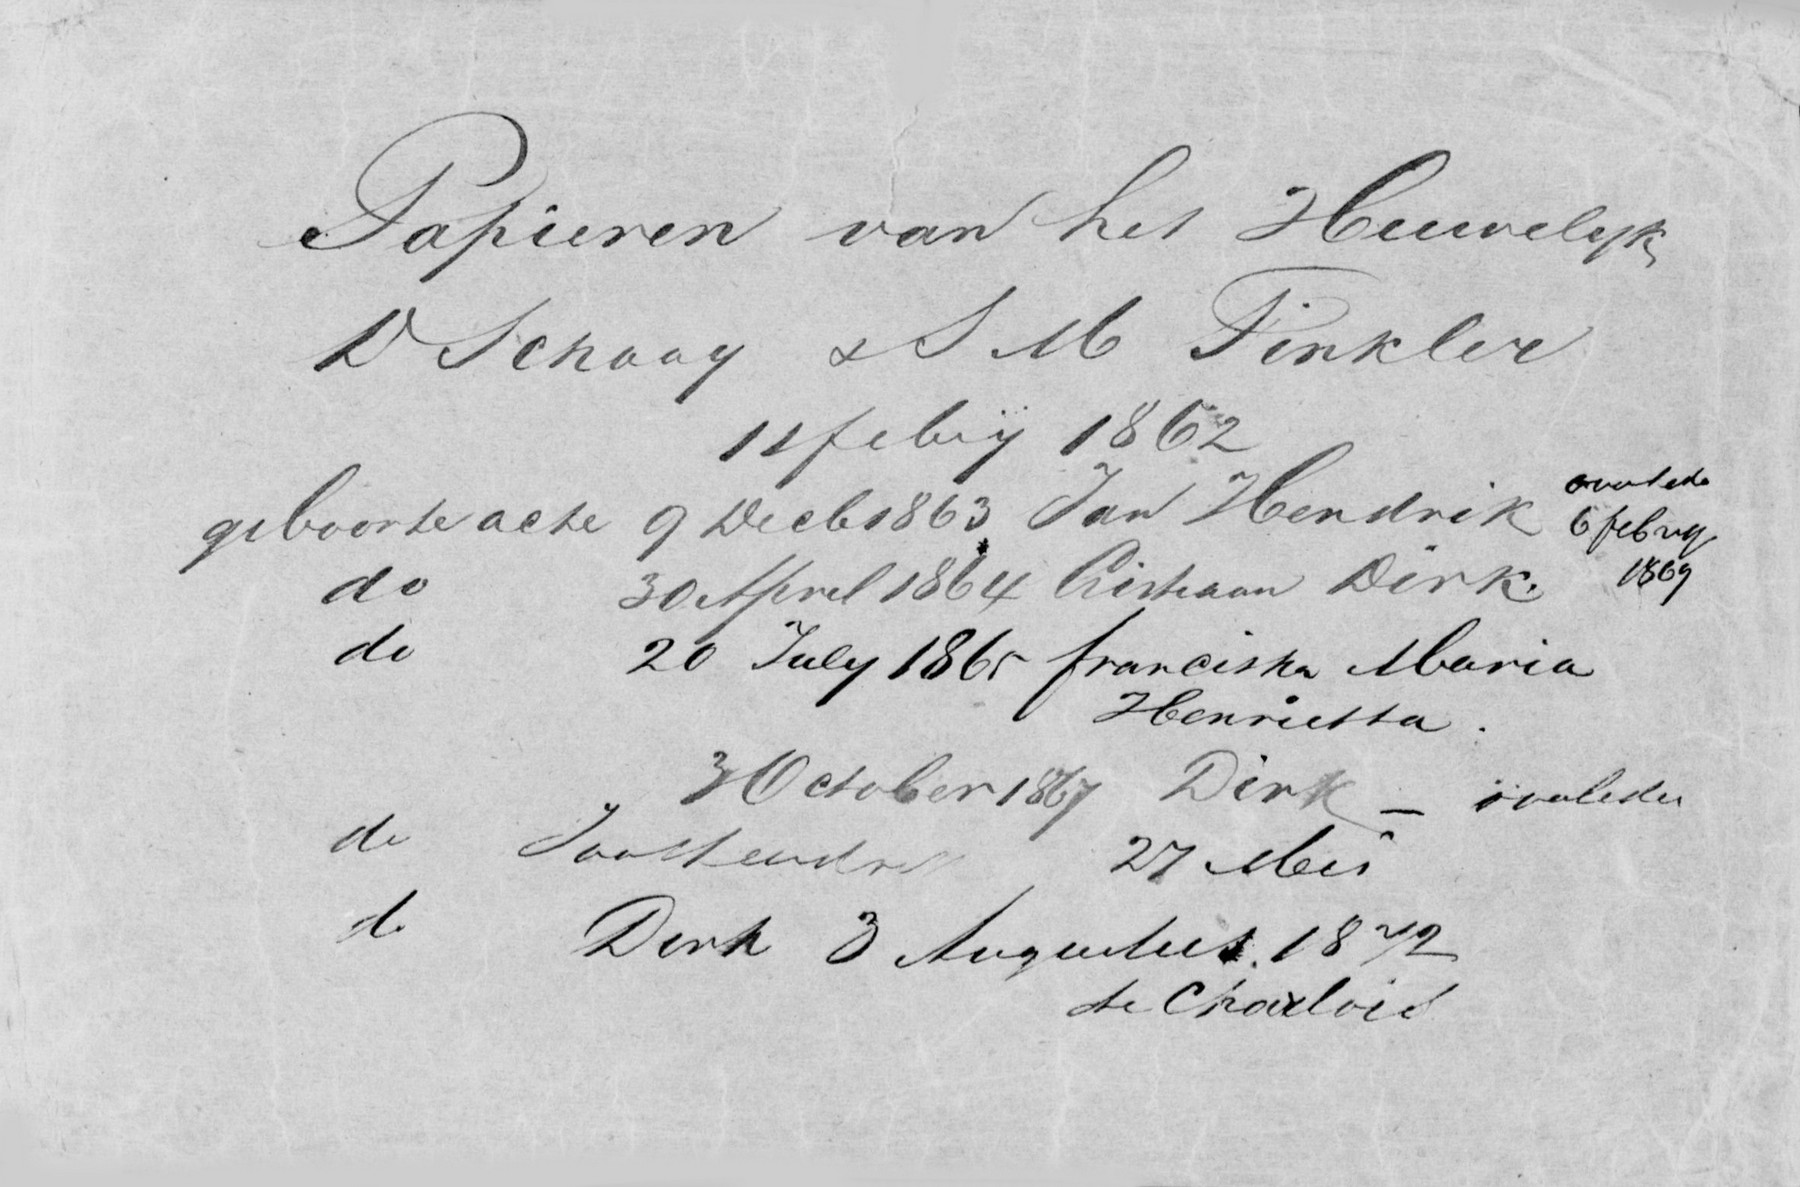 Papieren van het Heuwelyk
D Schaay & S M Finkler
11 feby 1862
geboorte acte 9 Decb 1863 Jan Hendrik overlede
6 februy
1869
do 30 April 1864 Cristiaan Dirk.
do 20 July 1865 franciska Maria
Henrietta.
3 October 1867 Dirk — overleden
do 27 Mei
do Dirk 3 Augustus. 1872
te Charlois